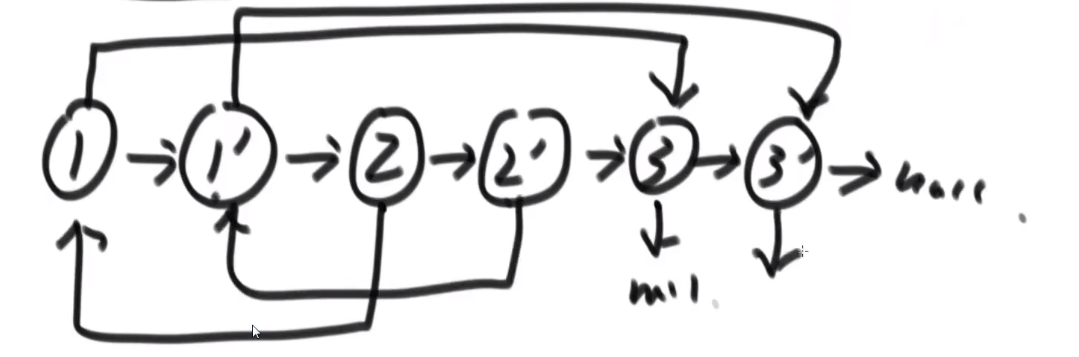 1 → 1' → 2 → 2' → 3 → 3' → null
null